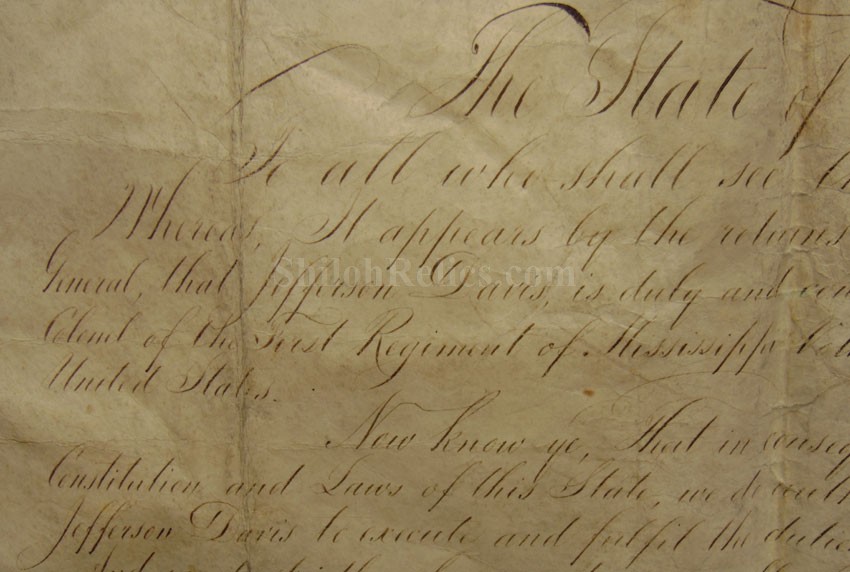 The State of
To all who shall see
Whereas, It appears by the returns
General, that Jefferson Davis, is duly and
Colonel of the First Regiment of Mississippi
United States.
Now know ye, That in
Constitution and Laws of this State, we do
Jefferson Davis to execute and fulfil the duties
ShilohRelics.com